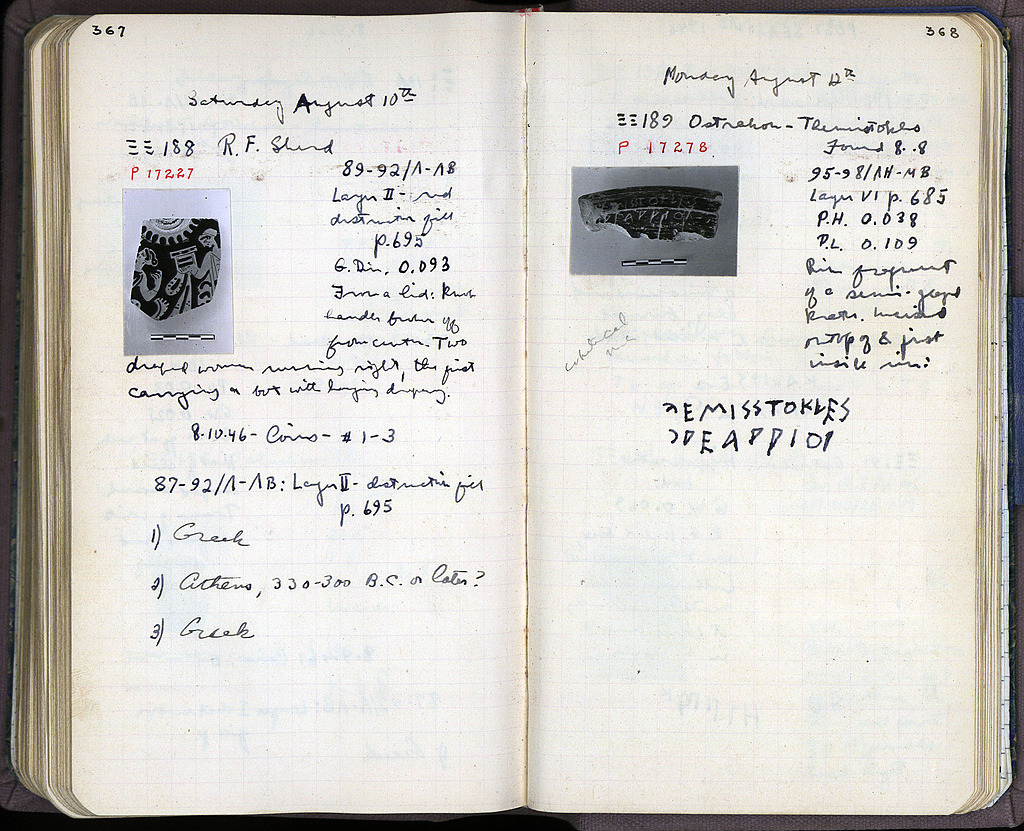 367
Saturday August 10th
ΞΞ 188 R.F. Sherd
P 17227
89-92/Λ-ΛB
Layer II - red
destruction fill
p. 695
G. Dim. 0.093
From a lid: knob
handle broken off
from centre. Two
draped women running right, the first
carrying a box with hanging drapery.
8.10.46 - Coins - #1-3
87-92/Λ-ΛB: Layer II - destruction fill
p. 695
1) Greek
2) Athens, 330-300 B.C. or later?
3) Greek
368
Monday August 12th
ΞΞ 189 Ostrakon - Themistokles
P 17278
Found 8..8
95-98/ΛH-MB
Layer VI p. 685
P.H. 0.038
P.L. 0.109
Rim fragment
of a semi-glazed
krater. Incised
on top & just
inside rim:
ƎEMISSTOKLES
ƆƆEAPPIOI